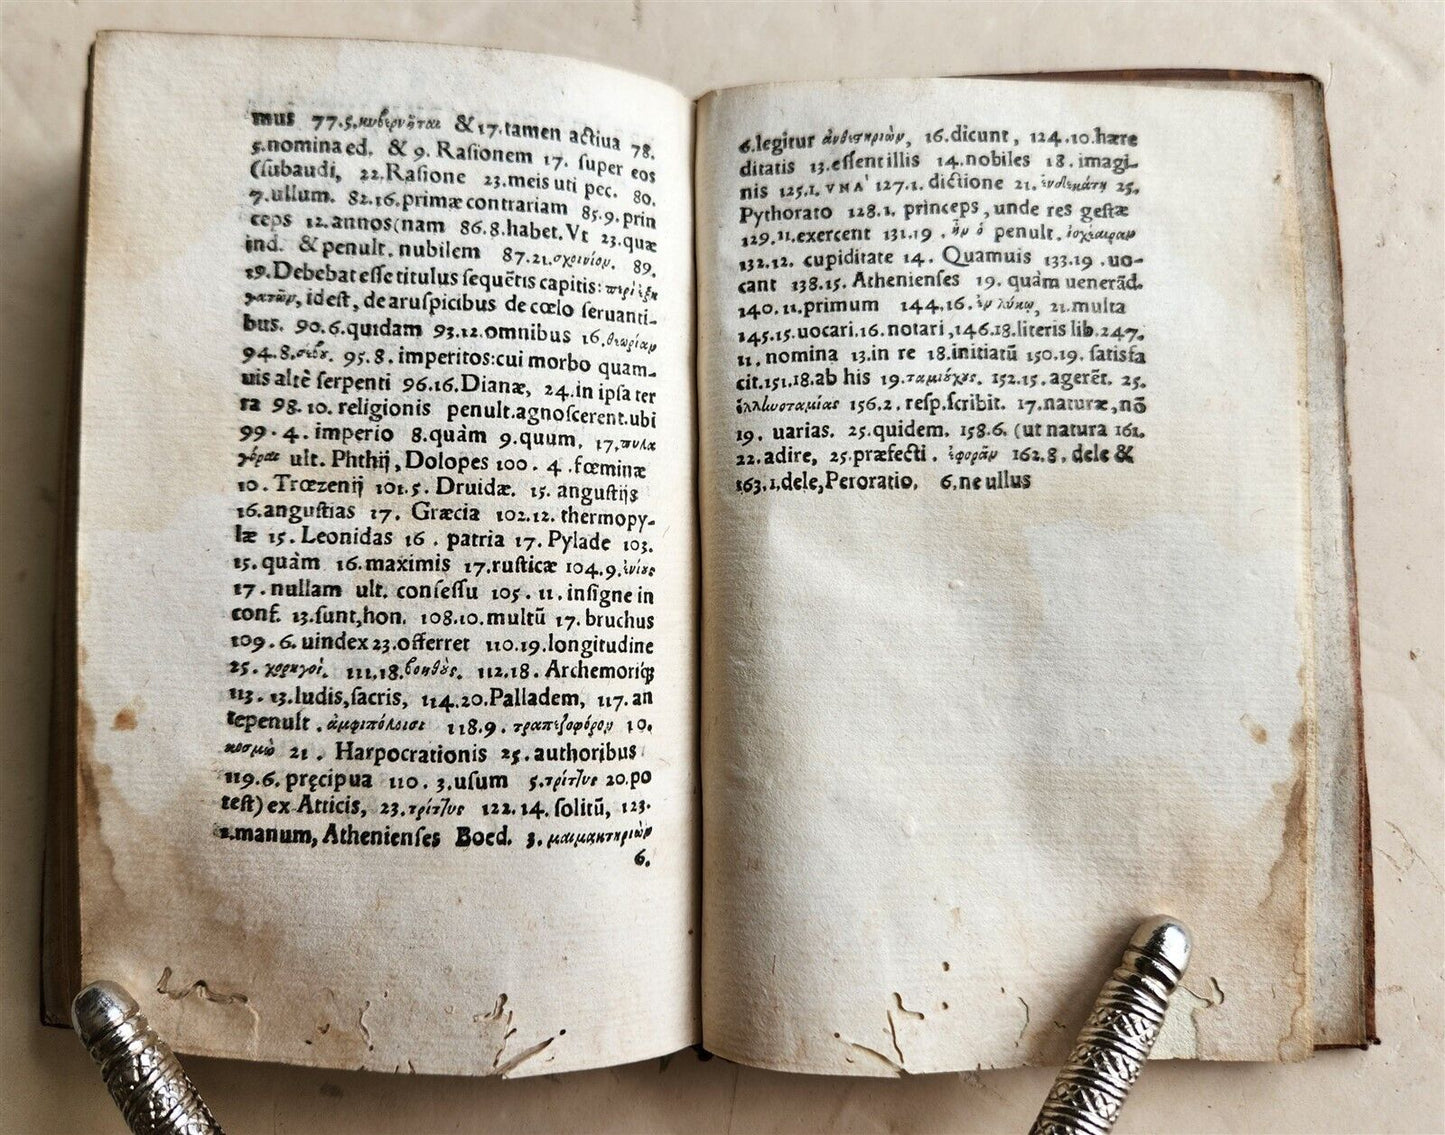 mus 77.5.κυβερνῆται & 17.tamen actiua 78.
5.nomina ed. & 9. Rasionem 17. super eos
(subaudi, 22.Rasione 23.meis uti pec. 80.
7.ullum. 82.16.primæ contrariam 85.9.prin
ceps 12.annos(nam 86.8.habet.Vt 23.quæ
ind. & penult. nubilem 87.21.σχοινίον. 89.
19.Debebat esse titulus sequẽtis capitis: περὶ ἐξη
γητῶν, id est, de aruspicibus de cœlo seruanti-
bus. 90.6.quidam 93.12.omnibus 16.θεωρίαν
94.8. 95.8. imperitos:cui morbo quam-
uis altè serpenti 96.16.Dianæ, 24.in ipsa ter
ra 98.10. religionis penult.agnoscerent.ubi
99.4. imperio 8.quàm 9.quum, 17.πυλα
γόραι ult. Phthij, Dolopes 100. 4.fœminæ
10. Trœzenij 101.5. Druidæ. 15. angustijs
16.angustias 17. Græcia 102.12. thermopy-
læ 15. Leonidas 16. patria 17. Pylade 103.
15.quàm 16.maximis 17.rusticæ 104.9.ἐνίους
17.nullam ult. consessu 105. 11. insigne in
conf. 13.sunt,hon. 108.10.multũ 17. bruchus
109.6. uindex 23.offerret 110.19.longitudine
25. χορηγοί. 111.18.βοηθὸς. 112.18. Archemoriq́;
113. 13.ludis,sacris, 114.20.Palladem, 117. an
tepenult. ἀμφιπόλοισι 118.9. τραπεζοφόρου 10.
κοσμὼ 21. Harpocrationis 25. authoribus
119.6. pręcipua 110. 3.usum 5.τρίτ]υς 20.po
test) ex Atticis, 23.τρίτ]υς 122.14. solitũ, 123.
2.manum, Athenienses Boed. 3. μαιμακτηριὼν
6.
6.legitur ἀνθεστηριὼν, 16.dicunt, 124.10.hære
ditatis 13.essent illis 14.nobiles 18. imagi-
nis 125.1. VNA' 127.1. dictione 21. ἑνδεκάτη 25.
Pythorato 128.1. princeps, unde res gestæ
129.11.exercent 131.19. ἣν ὁ penult. ἰσχιαιραν
132.12. cupiditate 14. Quamuis 133.19.uo-
cant 138.15. Athenienses 19. quàm uenerãd.
140.11.primum 144.16.ἐν λύκῳ, 21.multa
145.15.uocari.16. notari, 146.18.literis lib.247.
11. nomina 13.in re 18.initiatũ 150.19. satisfa
cit.151.18.ab his 19.ταμιούχος. 152.15.agerẽt. 25.
ἑλληνοταμίας 156.2. resp.scribit. 17.naturæ,nõ
19. uarias. 25.quidem. 158.6. (ut natura 161.
22.adire, 25.præfecti. ἐφορᾶν 162.8. dele &
163.1.dele,Peroratio, 6.ne ullus